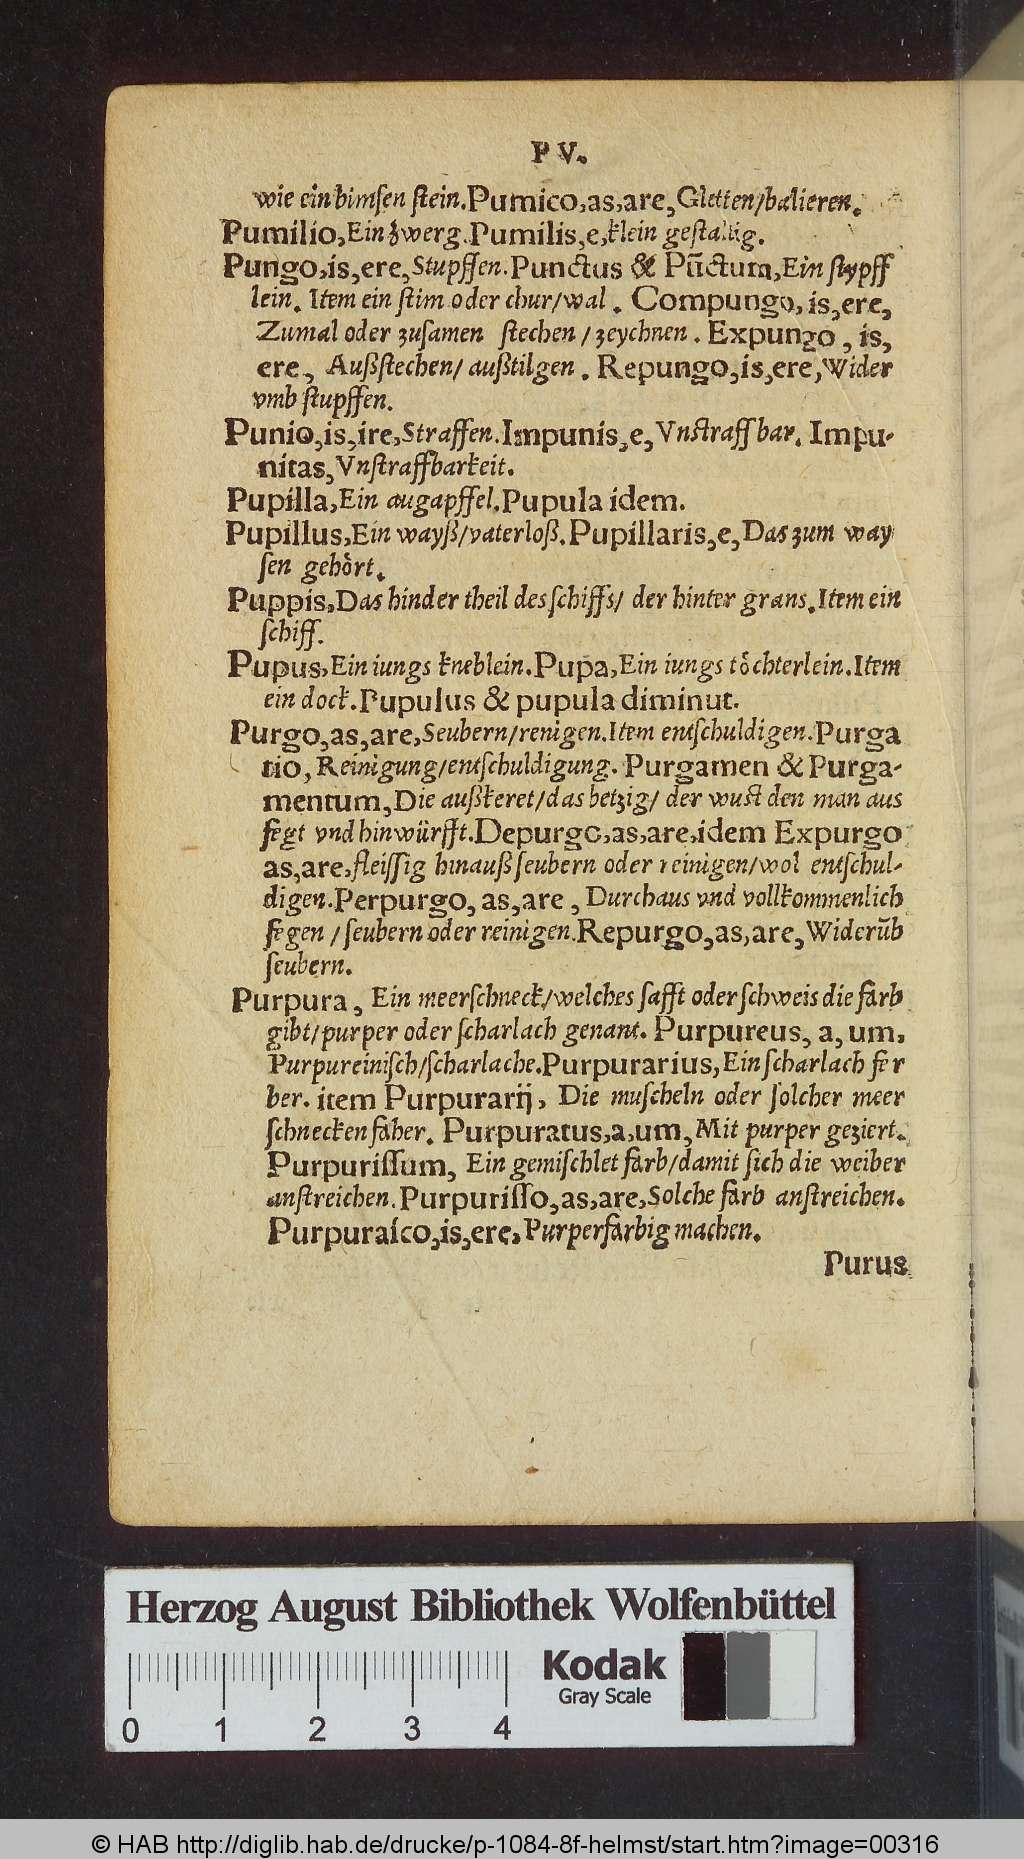 PV.
wie ein bimsen stein. Pumico,as,are, Gletten/balieren.
Pumilio, Ein zwerg. Pumilis,e, klein gestaltig.
Pungo,is,ere, Stupffen. Punctus & Pūctura, Ein stypff
lein. Item ein stim oder chur/wal. Compungo, is,ere,
Zumal oder zusamen stechen/zeychnen. Expungo, is,
ere, Außstechen/ außtilgen. Repungo,is,ere, Wider
vmb stupffen.
Punio,is,ire, Straffen. Impunis,e, Vnstraffbar. Impu-
nitas, Vnstraffbarkeit.
Pupilla, Ein augapffel. Pupula idem.
Pupillus, Ein wayß/vaterloß. Pupillaris,e, Das zum way
sen gehoͤrt.
Puppis, Das hinder theil des schiffs/ der hinter grans. Item ein
schiff.
Pupus, Ein iungs kneblein. Pupa, Ein iungs toͤchterlein. Item
ein dock. Pupulus & pupula diminut.
Purgo,as,are, Seubern/renigen. Item entschuldigen. Purga
tio, Reinigung/entschuldigung. Purgamen & Purga-
mentum, Die außkeret/das betzig/ der wust den man aus
fegt vnd hinwürfft. Depurgo,as,are,idem Expurgo
as,are, fleissig hinauß seubern oder reinigen/wol entschul-
digen. Perpurgo, as,are, Durchaus vnd vollkommenlich
fegen/seubern oder reinigen. Repurgo,as,are, Widerūb
seubern.
Purpura, Ein meerschneck/welches safft oder schweis die farb
gibt/purper oder scharlach genant. Purpureus, a, um,
Purpureinisch/scharlache. Purpurarius, Ein scharlach fer
ber. item Purpurarij, Die muscheln oder solcher meer
schnecken faher. Purpuratus,a,um, Mit purper geziert.
Purpurissum, Ein gemischlet farb/damit sich die weiber
anstreichen. Purpurisso,as,are, Solche farb anstreichen.
Purpurasco,is,ere, Purperfarbig machen.
Purus
Herzog August Bibliothek Wolfenbüttel
Kodak
Gray Scale
0 1 2 3 4
© HAB http://diglib.hab.de/drucke/p-1084-8f-helmst/start.htm?image=00316